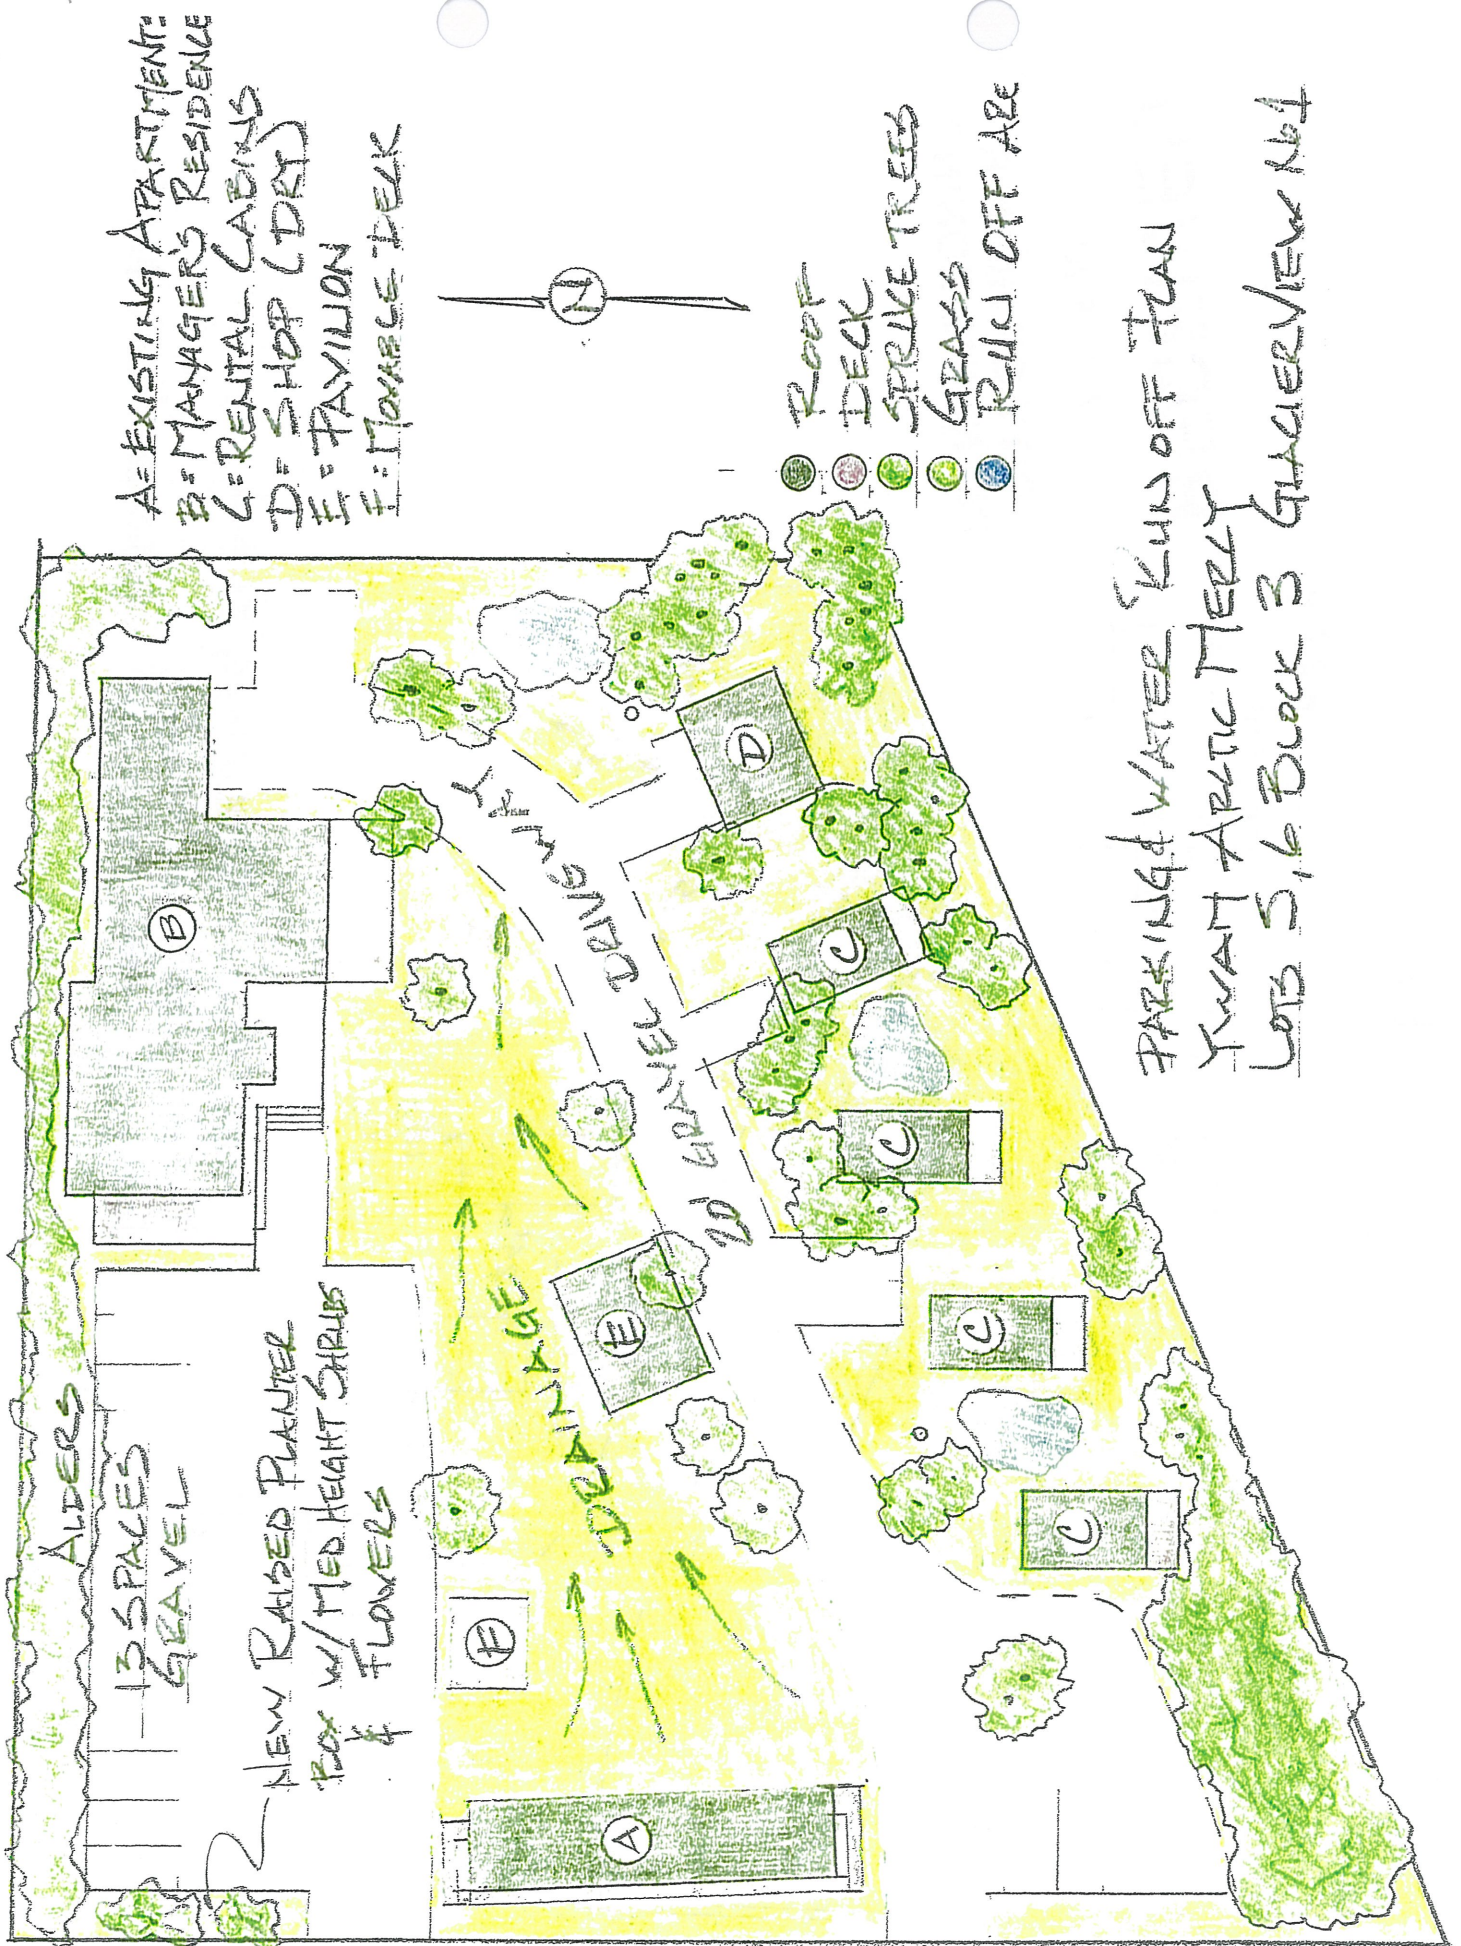 A=EXISTING APARTMENT=
B=MANAGER'S RESIDENCE
C=RENTAL CABINS
D=SHOP (DRY)
E=PAVILION
F=MOVABLE DECK
N
ROOF
DECK
SPRUCE TREES
GRASS
RUN OFF ARE
PARKING & WATER RUN OFF PLAN
TWAM ARCTIC MERLY
LOTS 5,6 BLOCK 3 GLACIERVIEW No1
ALDERS
13 SPACES
GRAVEL
NEW RAISED PLANTER
BOX W/ MED HEIGHT SHRUBS
& FLOWERS
DRAINAGE
20' GRAVEL DRIVEWAY
A
B
C
C
C
C
D
E
F